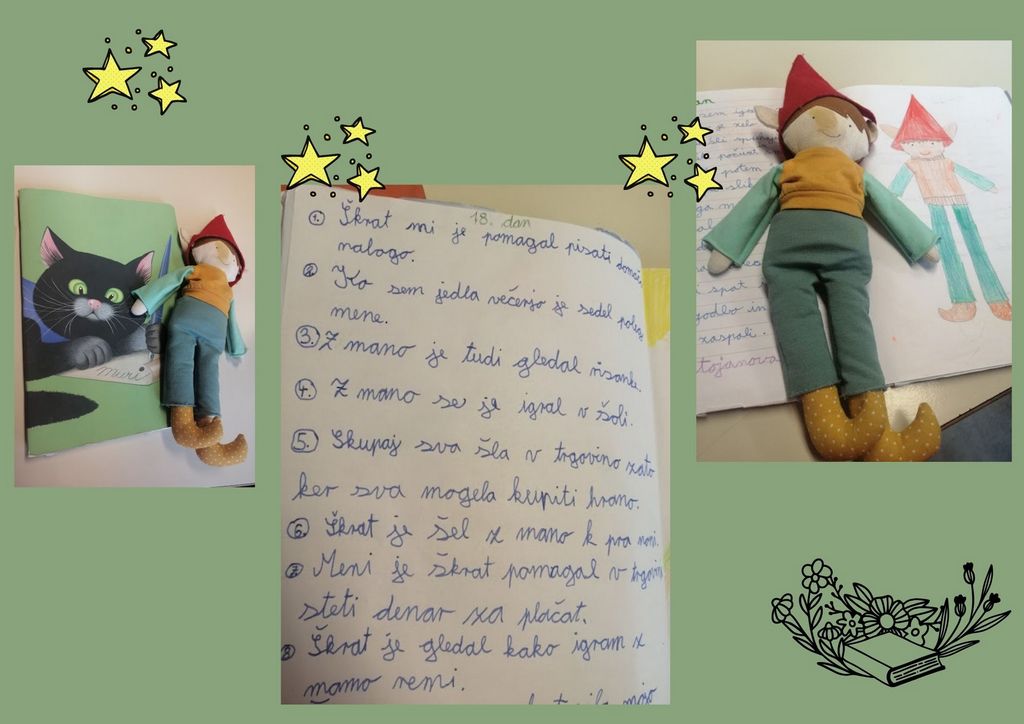 muri
18. dan
1. Škrat mi je pomagal pisati domačo
nalogo.
2. Ko sem jedla večerjo je sedel poleg
mene.
3. Z mano je tudi gledal risanke.
4. Z mano se je igral v šoli.
5. Skupaj sva šla v trgovino zato
ker sva mogela kupiti hrano.
6. Škrat je šel z mano k pra noni.
7. Meni je škrat pomagal v trgovini
šteti denar za plačat.
8. Škrat je gledal kako igram z
mamo remi.
an
sem igra
potem
slik
ga m
al
i spat
godbo in
zaspali.
tojanova